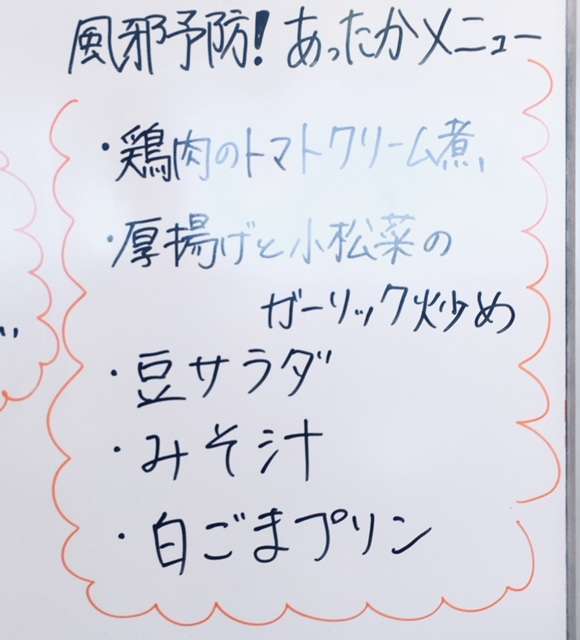 風邪予防！あったかメニュー
・鶏肉のトマトクリーム煮
・厚揚げと小松菜の
ガーリック炒め
・豆サラダ
・みそ汁
・白ごまプリン